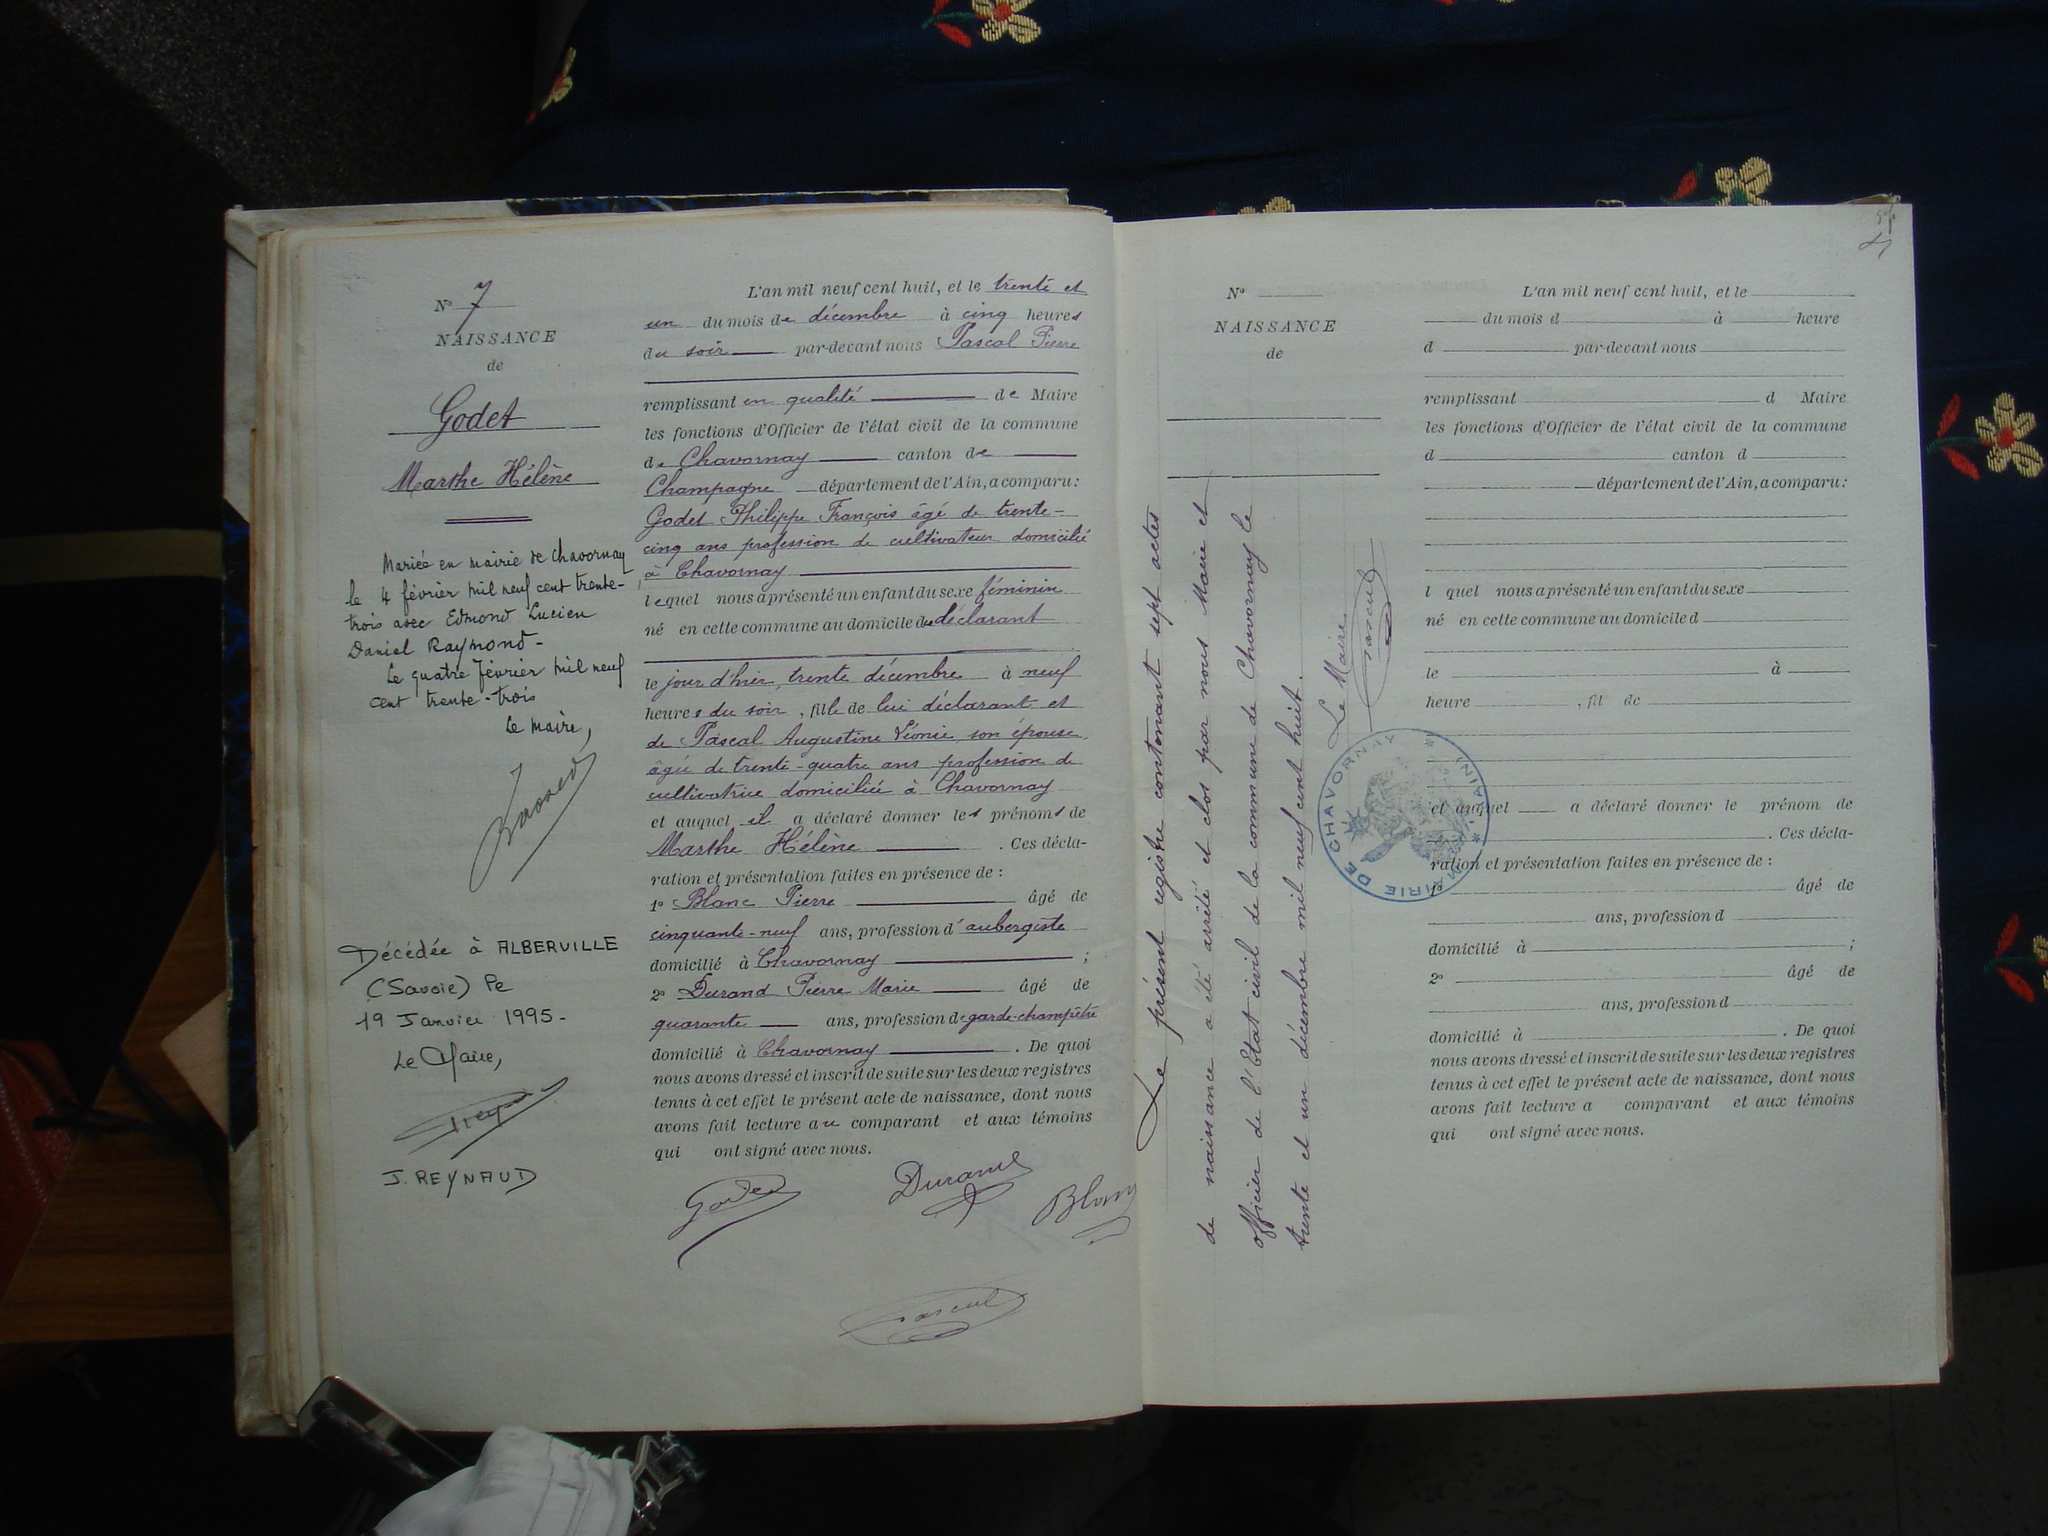 N° 7
NAISSANCE
de
Godet
Marthe Hélène
Mariée en mairie de Chavornay
le 4 février mil neuf cent trente-
trois avec Edmond Lucien
Daniel Raymond -
Le quatre février mil neuf
cent trente-trois
Le maire,
Décédée à ALBERVILLE
(Savoie) le
19 Janvier 1995-
Le Maire,
J. REYNAUD
L'an mil neuf cent huit, et le trente et
un du mois de décembre à cinq heures
du soir par-devant nous Pascal Pierre
remplissant en qualité de Maire
les fonctions d'Officier de l'état civil de la commune
de Chavornay canton de
Champagne département de l'Ain, a comparu :
Godet Philippe François âgé de trente-
cinq ans profession de cultivateur domicilié
à Chavornay
lequel nous a présenté un enfant du sexe féminin
né en cette commune au domicile du déclarant
le jour d'hier, trente décembre à neuf
heures du soir, fille de lui déclarant et
de Pascal Augustine Léonie son épouse
âgée de trente-quatre ans profession de
cultivatrice domiciliée à Chavornay
et auquel il a déclaré donner les prénoms de
Marthe Hélène . Ces décla-
ration et présentation faites en présence de :
1° Blanc Pierre âgé de
cinquante-neuf ans, profession d'aubergiste
domicilié à Chavornay ;
2° Durand Pierre Marie âgé de
quarante ans, profession de garde-champêtre
domicilié à Chavornay . De quoi
nous avons dressé et inscrit de suite sur les deux registres
tenus à cet effet le présent acte de naissance, dont nous
avons fait lecture au comparant et aux témoins
qui ont signé avec nous.
Godet
Durand
Blanc
Pascal
Le présent registre contenant sept actes
de naissance a été arrêté et clos par nous Maire et
officier de l'Etat civil de la commune de Chavornay le
trente et un décembre mil neuf cent huit.
Le Maire
Pascal
MAIRIE DE CHAVORNAY * (AIN) *
N°
NAISSANCE
de
L'an mil neuf cent huit, et le
du mois d à heure
d par-devant nous
remplissant d Maire
les fonctions d'Officier de l'état civil de la commune
d canton d
département de l'Ain, a comparu :
l quel nous a présenté un enfant du sexe
né en cette commune au domicile d
le à
heure , fil de
et auquel a déclaré donner le prénom de
. Ces décla-
ration et présentation faites en présence de :
1° âgé de
ans, profession d
domicilié à ;
2° âgé de
ans, profession d
domicilié à . De quoi
nous avons dressé et inscrit de suite sur les deux registres
tenus à cet effet le présent acte de naissance, dont nous
avons fait lecture a comparant et aux témoins
qui ont signé avec nous.